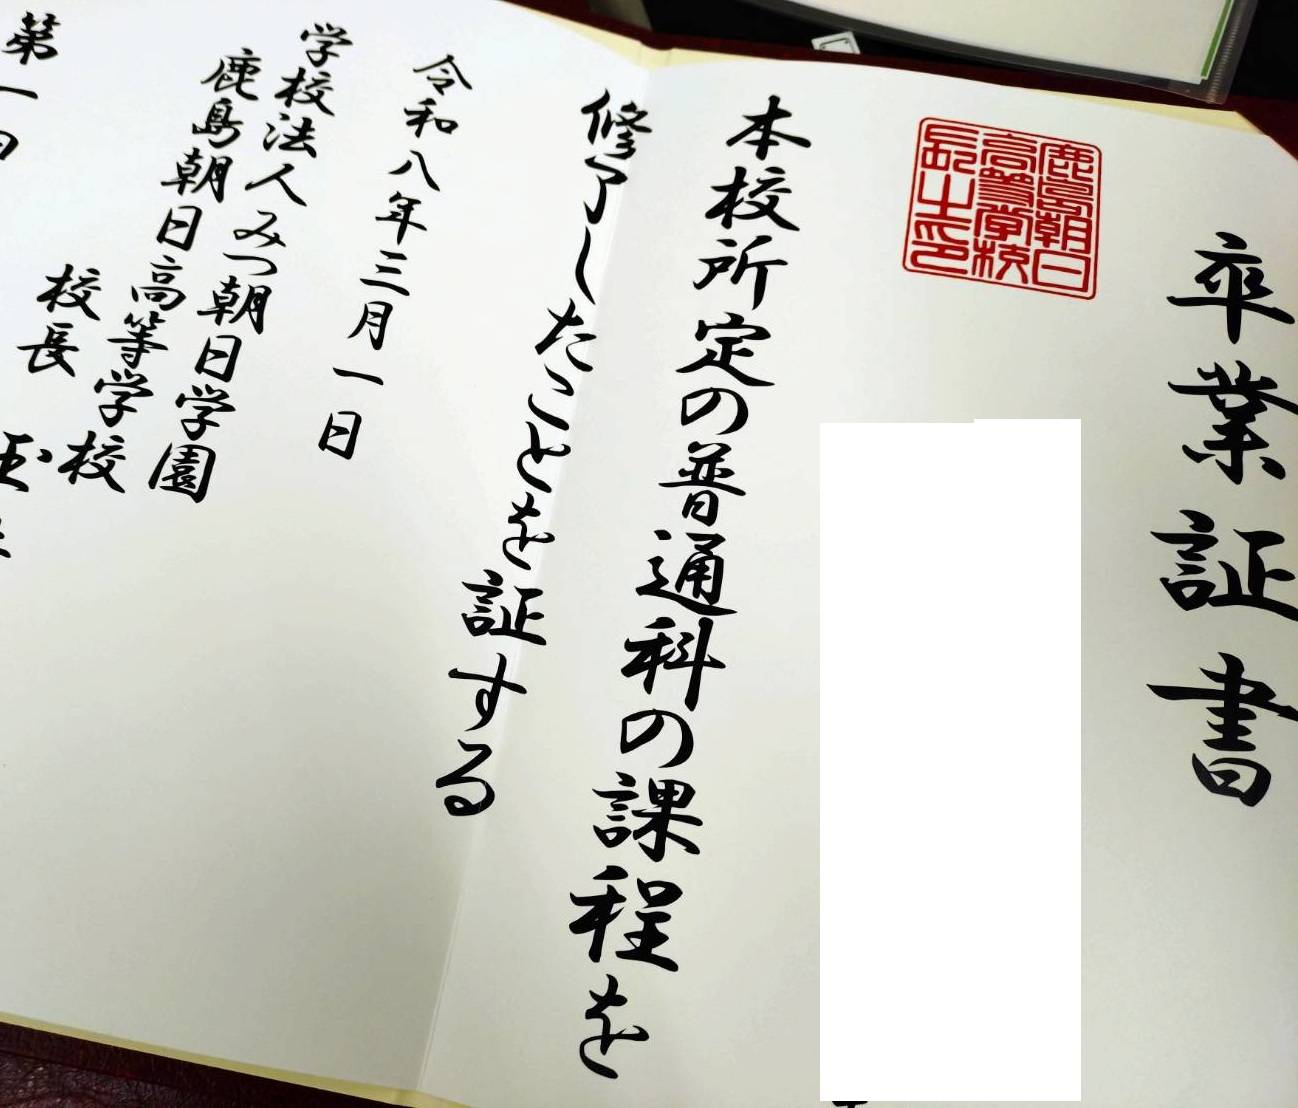 卒業証書
鹿島朝日
高等学校
長之印
本校所定の普通科の課程を
修了したことを証する
令和八年三月一日
学校法人みつ朝日学園
鹿島朝日高等学校
校長
第一